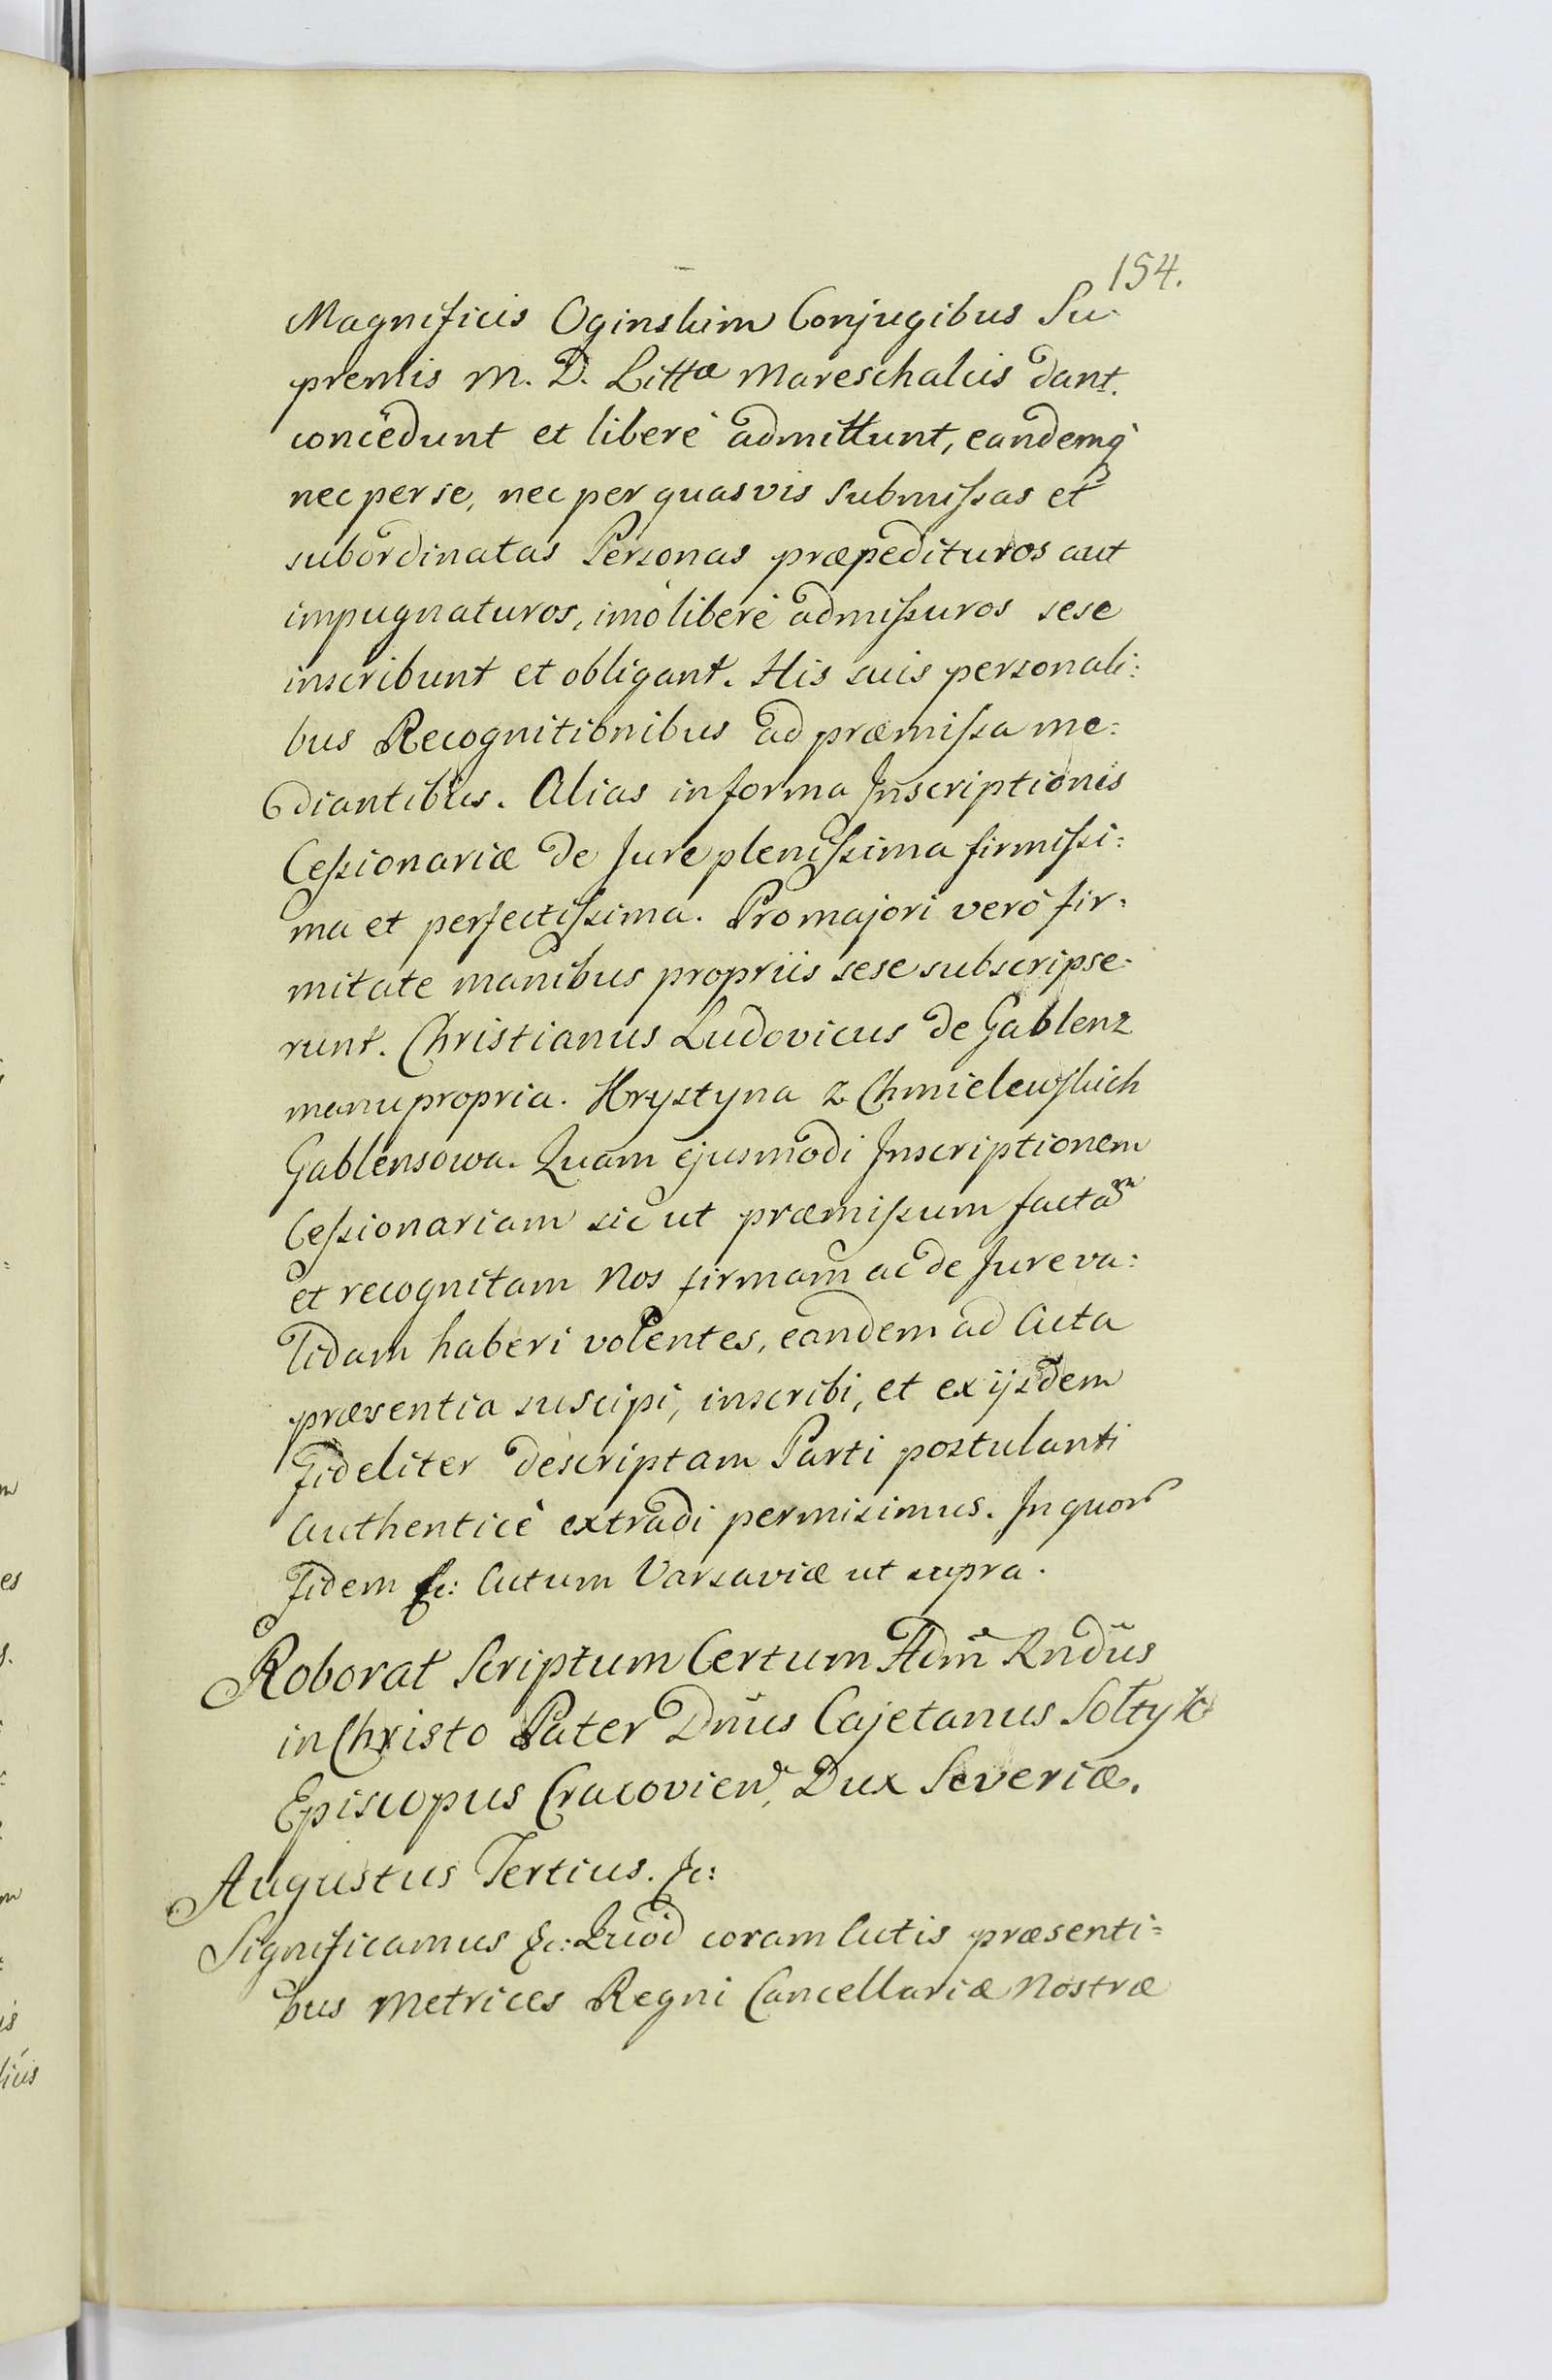 154.
Magnificis Oginskim Conjugibus Su-
premis M. D. Littæ Mareschalcis dant.
concedunt et liberè admittunt, eandemq̀
nec per se, nec per quasvis submissas et
subordinatas Personas præpedituros aut
impugnaturos, imò liberè admissuros sese
inscribunt et obligant. His suis personali:
bus Recognitionibus ad præmissa me:
diantibus. Alias in forma Inscriptionis
Cessionariæ de Jure plenissima firmissi:
ma et perfectissima. Pro majori verò fir:
mitate manibus propriis sese subscripse-
runt. Christianus Ludovicus de Gablenz
manu propria. Krystyna z Chmielewskich
Gablensowa. Quam ejusmodi Inscriptionem
Cessionariam sic ut præmissum factam
et recognitam Nos firmam ac de Jure va:
lidam haberi volentes, eandem ad Acta
præsentia suscipi, inscribi, et ex ijsdem
fideliter descriptam Parti postulanti
Authenticè extradi permisimus. In quor
fidem &c: Actum Varsaviæ ut supra.
Roborat Scriptum Certum Adm̃ Rndus
in Christo Pater Dnus Cajetanus Sołtyk
Episcopus Cracovien, Dux Severiæ.
Augustus Tertius. &c:
Significamus &c: Quod coram Actis præsenti=
bus Metrices Regni Cancellariæ Nostræ